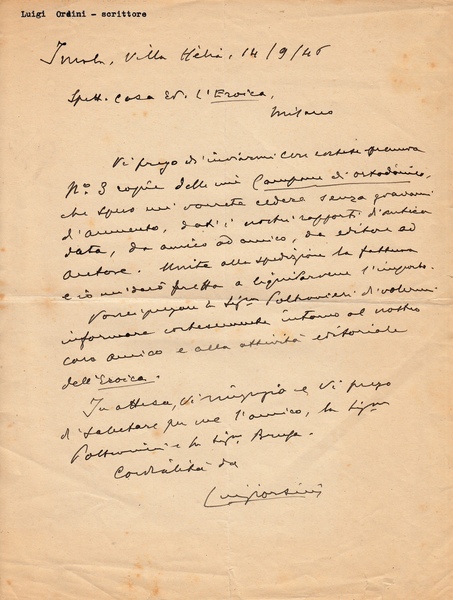 Luigi Orsini - scrittore
Imola, Villa Hèlia, 14/9/46
Spett. Casa Ed. L'Eroica,
Milano
Vi prego di inviarmi con cortese premura
N.° 3 copie delle mie Campane di ortodònico,
che spero mi vorrete cedere senza gravami
d'aumento, dati i nostri rapporti d'antica
data, da amico ad amico, da editore ad
autore. Unite alla spedizione la fattura
e ciò mi darà fretta a liquidarvene l'importo.
Vorrei pregare la Sig.na Poltronieri di volermi
informare cortesemente intorno al nostro
caro amico e alla attività editoriale
dell'Eroica.
In attesa, Vi ringrazio e Vi prego
di salutare per me l'amico, la Sig.na
Poltronieri e la Sig.
Cordialità da
Luigi Orsini